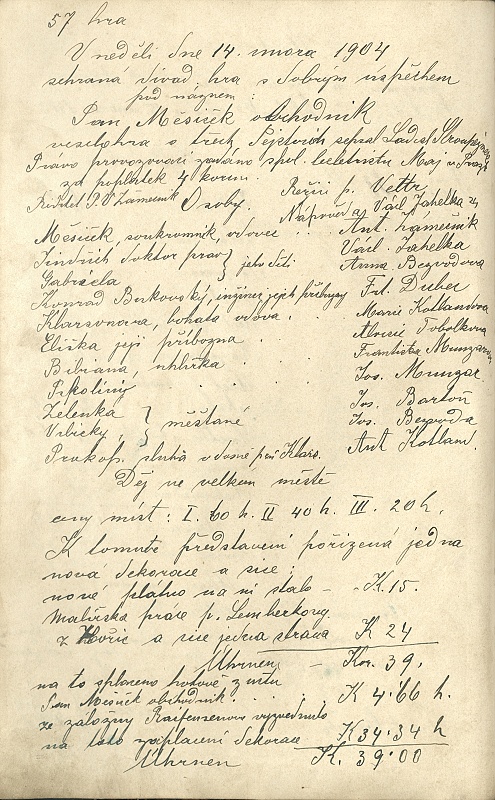 57 hra
V neděli dne 14. unora 1904
sehrana divad. hra s dobrým úspěchem
pod nazvem:
Pan Měsíček obchodník
veselohra o třech dějstvích sepsal Ladisl. Stroupežnický
Právo provozovací zadáno spol. Máj v Praze
za poplatek 4 korun. Režíí p. Vettr,
Ředitel P. V. Zamečník Osoby. Napověda Václ Jahelka
Měsíček, soukromník, vdovec . . . Ant. Zámečník
Jindřich doktor prav } jeho děti Václ. Jahelka
Gabriela Anna Bezvodova
Konrad Borkovský, inžiner jejich příbuzny Frt. Duber
Klarsonova, bohata vdova . Marie Kotlandova
Eliška její příbuzna . Tobolkova
Bibiana, Františka Munzarova
Prkoliny . . . . Jos. Munzar.
Zelenka } měštané Jos. Bartoň
Vrbicky, Jos. Bezvoda
Prokop. sluha v domě paní Klars. Ant Kotland.
Děj ve velkém městě
ceny míst: I. 60 h. II 40 h. III. 20 h.
K tomuto představení pořizená jedna
nová dekorace a sice:
nové platno na ni stalo - . K. 15.
Malířska práce p. Lemberkovy.
z Hořic a sice jedna strana K 24
Uhrnem - Kor. 39.
na to splaceno hotově z
Pan Měsíček obchodník. . . K 4.66 h.
ze založny Raifeisenovi vyzvednuto
na tuto zaplacení dekorace K 34.34 h
Uhrnem K. 39.00